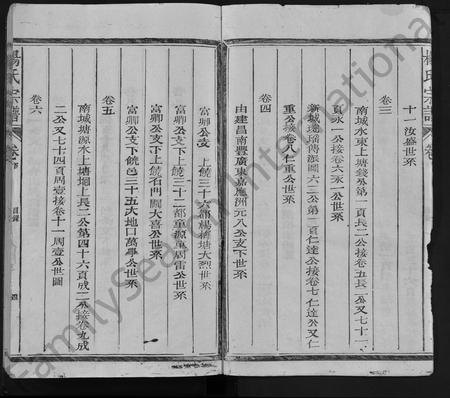 十一汝盛世系
卷三
南城水東上塘錢公第一頁長二公接卷五長二公又七十一
頁永一公接卷六永一公世系
新城珽瑤傳派圖六三公第一頁仁達公接卷七仁達公又仁
重公接卷八仁重公世系
卷四
由建昌南豐廣東嘉應洲元八公支下世系
富卿公支 上饒三十六都楊梅塘大烈世系
富卿公支下上饒二十二都童源單周雷公世系
富卿公支下上饒石門關大喜公世系
富卿公支下饒邑三十五大地口萬學公世系
卷五
南城塘源水上塘堌上長二公第四十六頁成二公接卷九成
二公又七十四頁周壹接卷十一周壹公世圖
卷六
楊氏宗譜
卷
目錄
四
楊氏宗譜
卷
FamilySearch International